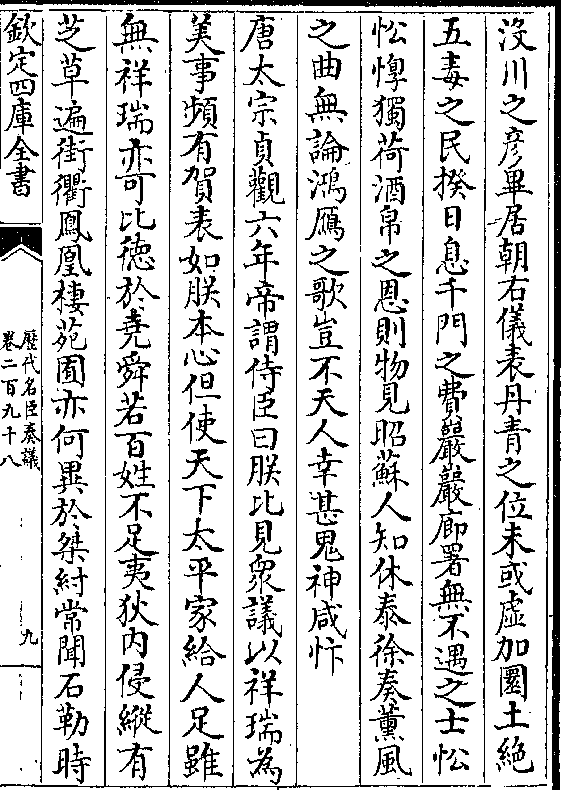 沒川之彦畢居朝右儀表丹青之位未或虚加圜土絶
五毒之民揆日息千門之費巖巖廊署無不遇之士忪
忪惸獨荷酒帛之恩則物見昭蘇人知休泰徐奏薰風
之曲無論鴻鴈之歌豈不天人幸甚鬼神咸忭
唐太宗貞觀六年帝謂侍臣曰朕比見衆議以祥瑞為
美事頻有賀表如朕本心但使天下太平家給人足雖
無祥瑞亦可比德於堯舜若百姓不足夷狄内侵縱有
芝草遍街衢鳳凰棲苑囿亦何異於桀紂常聞石勒時
欽定四庫全書
歷代名臣奏議
卷二百九十八
九